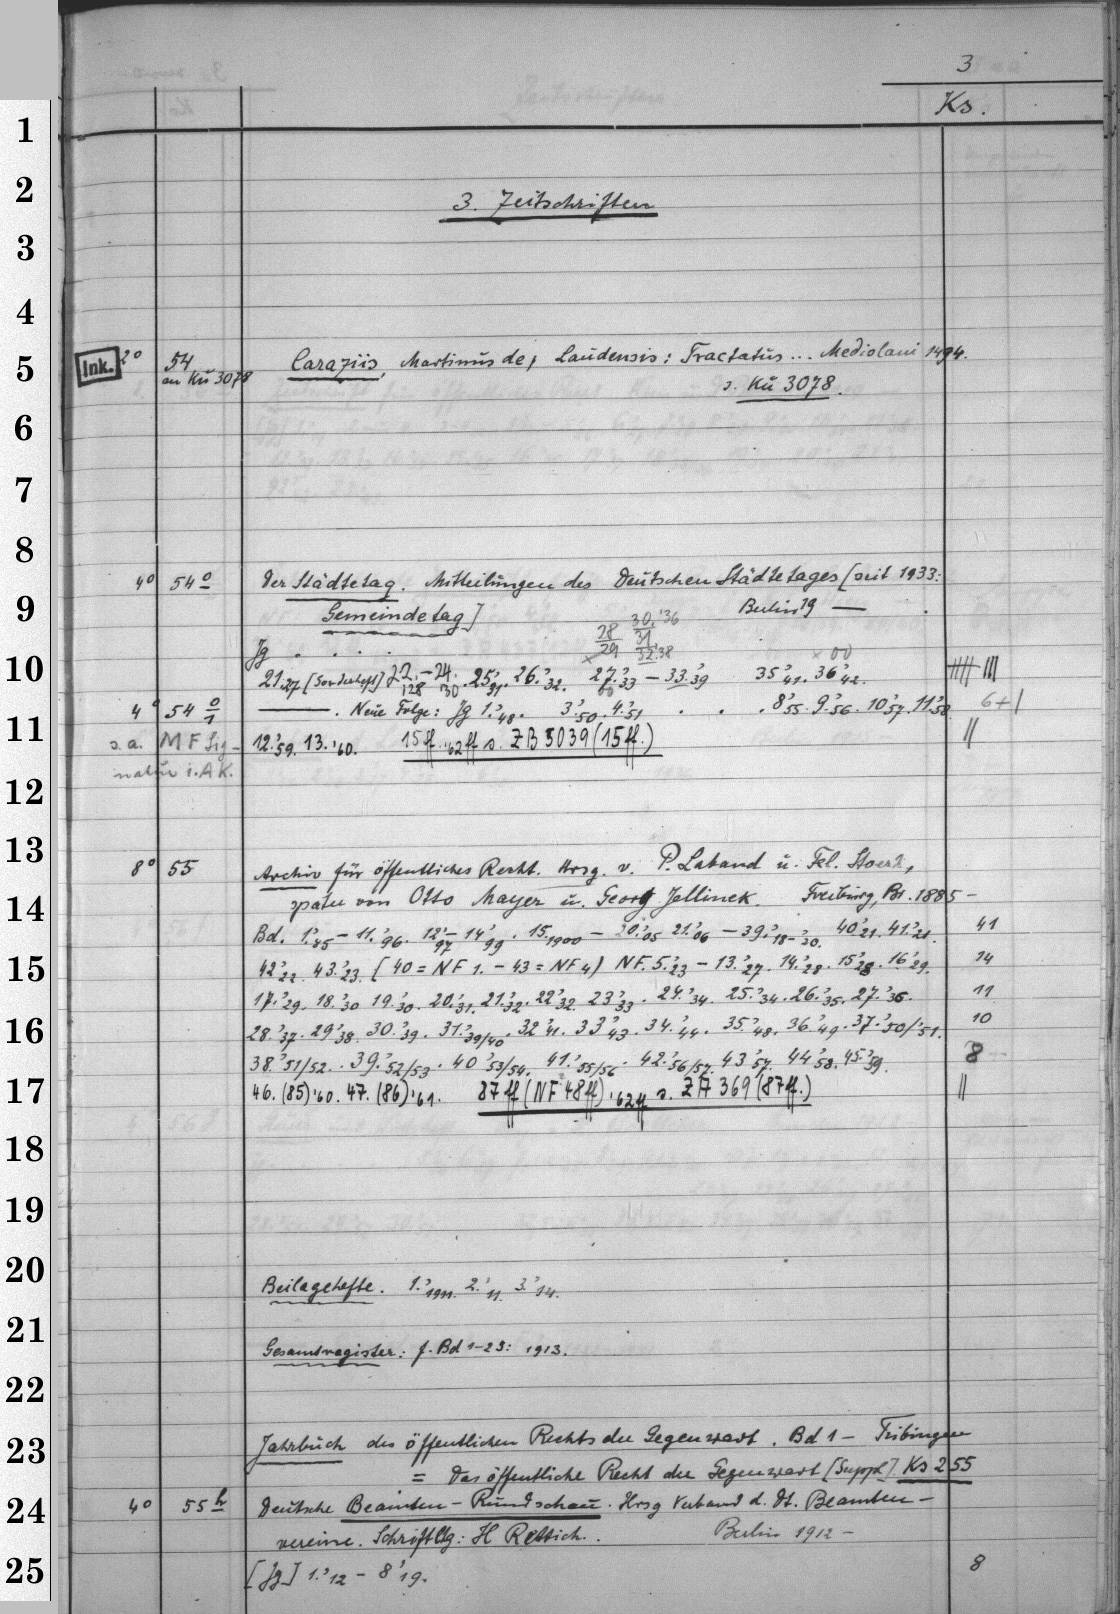 3
Ks.
1
2
3. Zeitschriften
3
4
5
Ink. 2° 54 Caraziis, Martinus de, Laudensis: Tractatus... Mediolani 1494.
an Kü 3078 s. Kü 3078.
6
7
8
4° 54 0 Der Städtetag. Mitteilungen des Deutschen Städtetages [seit 1933:
9
Gemeindetag] Berlin 19 — .
28 30.'36
29 31
32.38
Jg . . . . × 00
10
21.27 [Sonderheft] 22.-24. 25.'31. 26.'32. 27.'33 – 33.'39 35'41. 36'42.
128 30
4° 54 0/1 ——. Neue Folge: Jg 1.'48. 3'50. 4.'51 . . . 8'55. 9.'56. 10'57. 11'58 6+1
11
s. a. MF Sig- 12.'59. 13.'60. 15ff.'62ff s. ZB 5039 (15ff.) ||
natur i. AK.
12
13
8° 55 Archiv für öffentliches Recht. Hrsg. v. P. Laband u. Fel. Stoerk,
14
später von Otto Mayer u. Georg Jellinek. Freiburg, Br. 1885 –
Bd. 1.'85 – 11.'96. 12'97 – 14'99. 15.1900 – 20.'05 21.'06 – 39.'18–'20. 40'21. 41.'21. 41
15
42'22. 43.'23. [40 = NF 1. – 43 = NF 4) NF. 5.'23 – 13.'27. 14.'28. 15'28. 16'29. 14
17.'29. 18.'30 19.'30. 20.'31. 21.'32. 22'32 23'33. 24.'34. 25.'34. 26.'35. 27.'36. 11
16
28.'37. 29'38. 30.'39. 31.'39/40. 32'41. 33'43. 34.'44. 35.'48. 36'49. 37.'50/'51. 10
38.'51/52. 39.'52/53. 40'53/54. 41.'55/56. 42.'56/57. 43'57. 44'58. 45.'59. 8
17
46. (85)'60. 47. (86)'61. 87ff (NF 48ff).'62ff s. ZA 369 (87ff.) ||
18
19
20
Beilagehefte. 1.'1911. 2.'11. 3.'14.
21
Gesamtregister: f. Bd 1–25: 1913.
22
23
Jahrbuch des öffentlichen Rechts der Gegenwart. Bd 1 – Tübingen
= Das öffentliche Recht der Gegenwart [Suppl.] Ks 255
24
4° 55 h Deutsche Beamten-Rundschau. Hrsg Verband d. Dt. Beamten-
vereine. Schriftltg: H Rettich. Berlin 1912 –
25
[Jg] 1.'12 – 8'19. 8